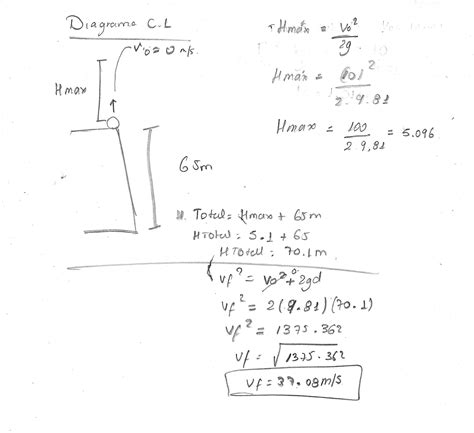 Diagrama C.L
Vo = 0 m/s.
Hmax
65m
Hmáx = Vo²
2g
Hmáx = (10)²
2.9.81
Hmax = 100 = 5.096
2 9,81
H. Total = Hmax + 65m
HTotal = 5.1 + 65
HTotal = 70.1m
Vf² = Vo² + 2gd
0
Vf² = 2(9.81)(70.1)
Vf² = 1375.362
Vf = √1375.362
Vf = 37.08m/s